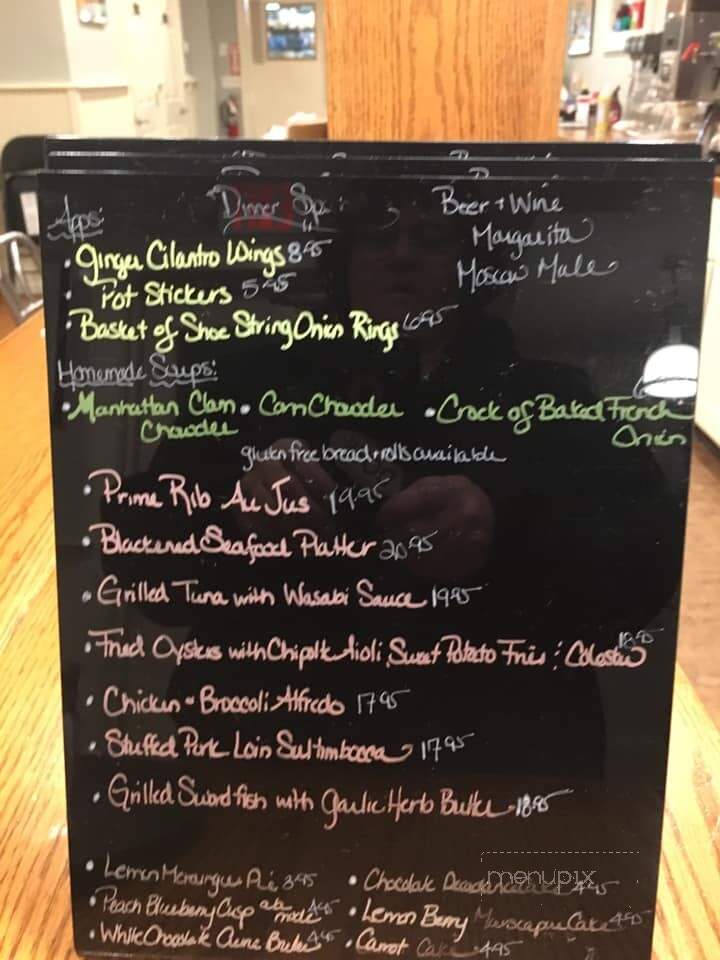 Dinner
Beer + Wine
Apps:
Margarita
Moscow Mule
• Ginger Cilantro Wings 8.95
• Pot Stickers 5.95
• Basket of Shoe String Onion Rings 6.95
Homemade Soups:
• Manhattan Clam Chowder • Corn Chowder • Crock of Baked French Onion
gluten free bread + rolls available
• Prime Rib Au Jus 19.95
• Blackened Seafood Platter 20.95
• Grilled Tuna with Wasabi Sauce 19.95
• Fried Oysters with Chipotle Aioli, Sweet Potato Fries & Coleslaw 18.95
• Chicken + Broccoli Alfredo 17.95
• Stuffed Pork Loin Saltimbocca 17.95
• Grilled Swordfish with Garlic Herb Butter 18.95
• Lemon Meringue Pie 3.95
• Chocolate 4.95
• Peach Blueberry Crisp ala mode 4.95
• Lemon Berry Marscapone Cake 4.95
• White Chocolate Creme Brulee 4.95
• Carrot Cake 4.95
menupix